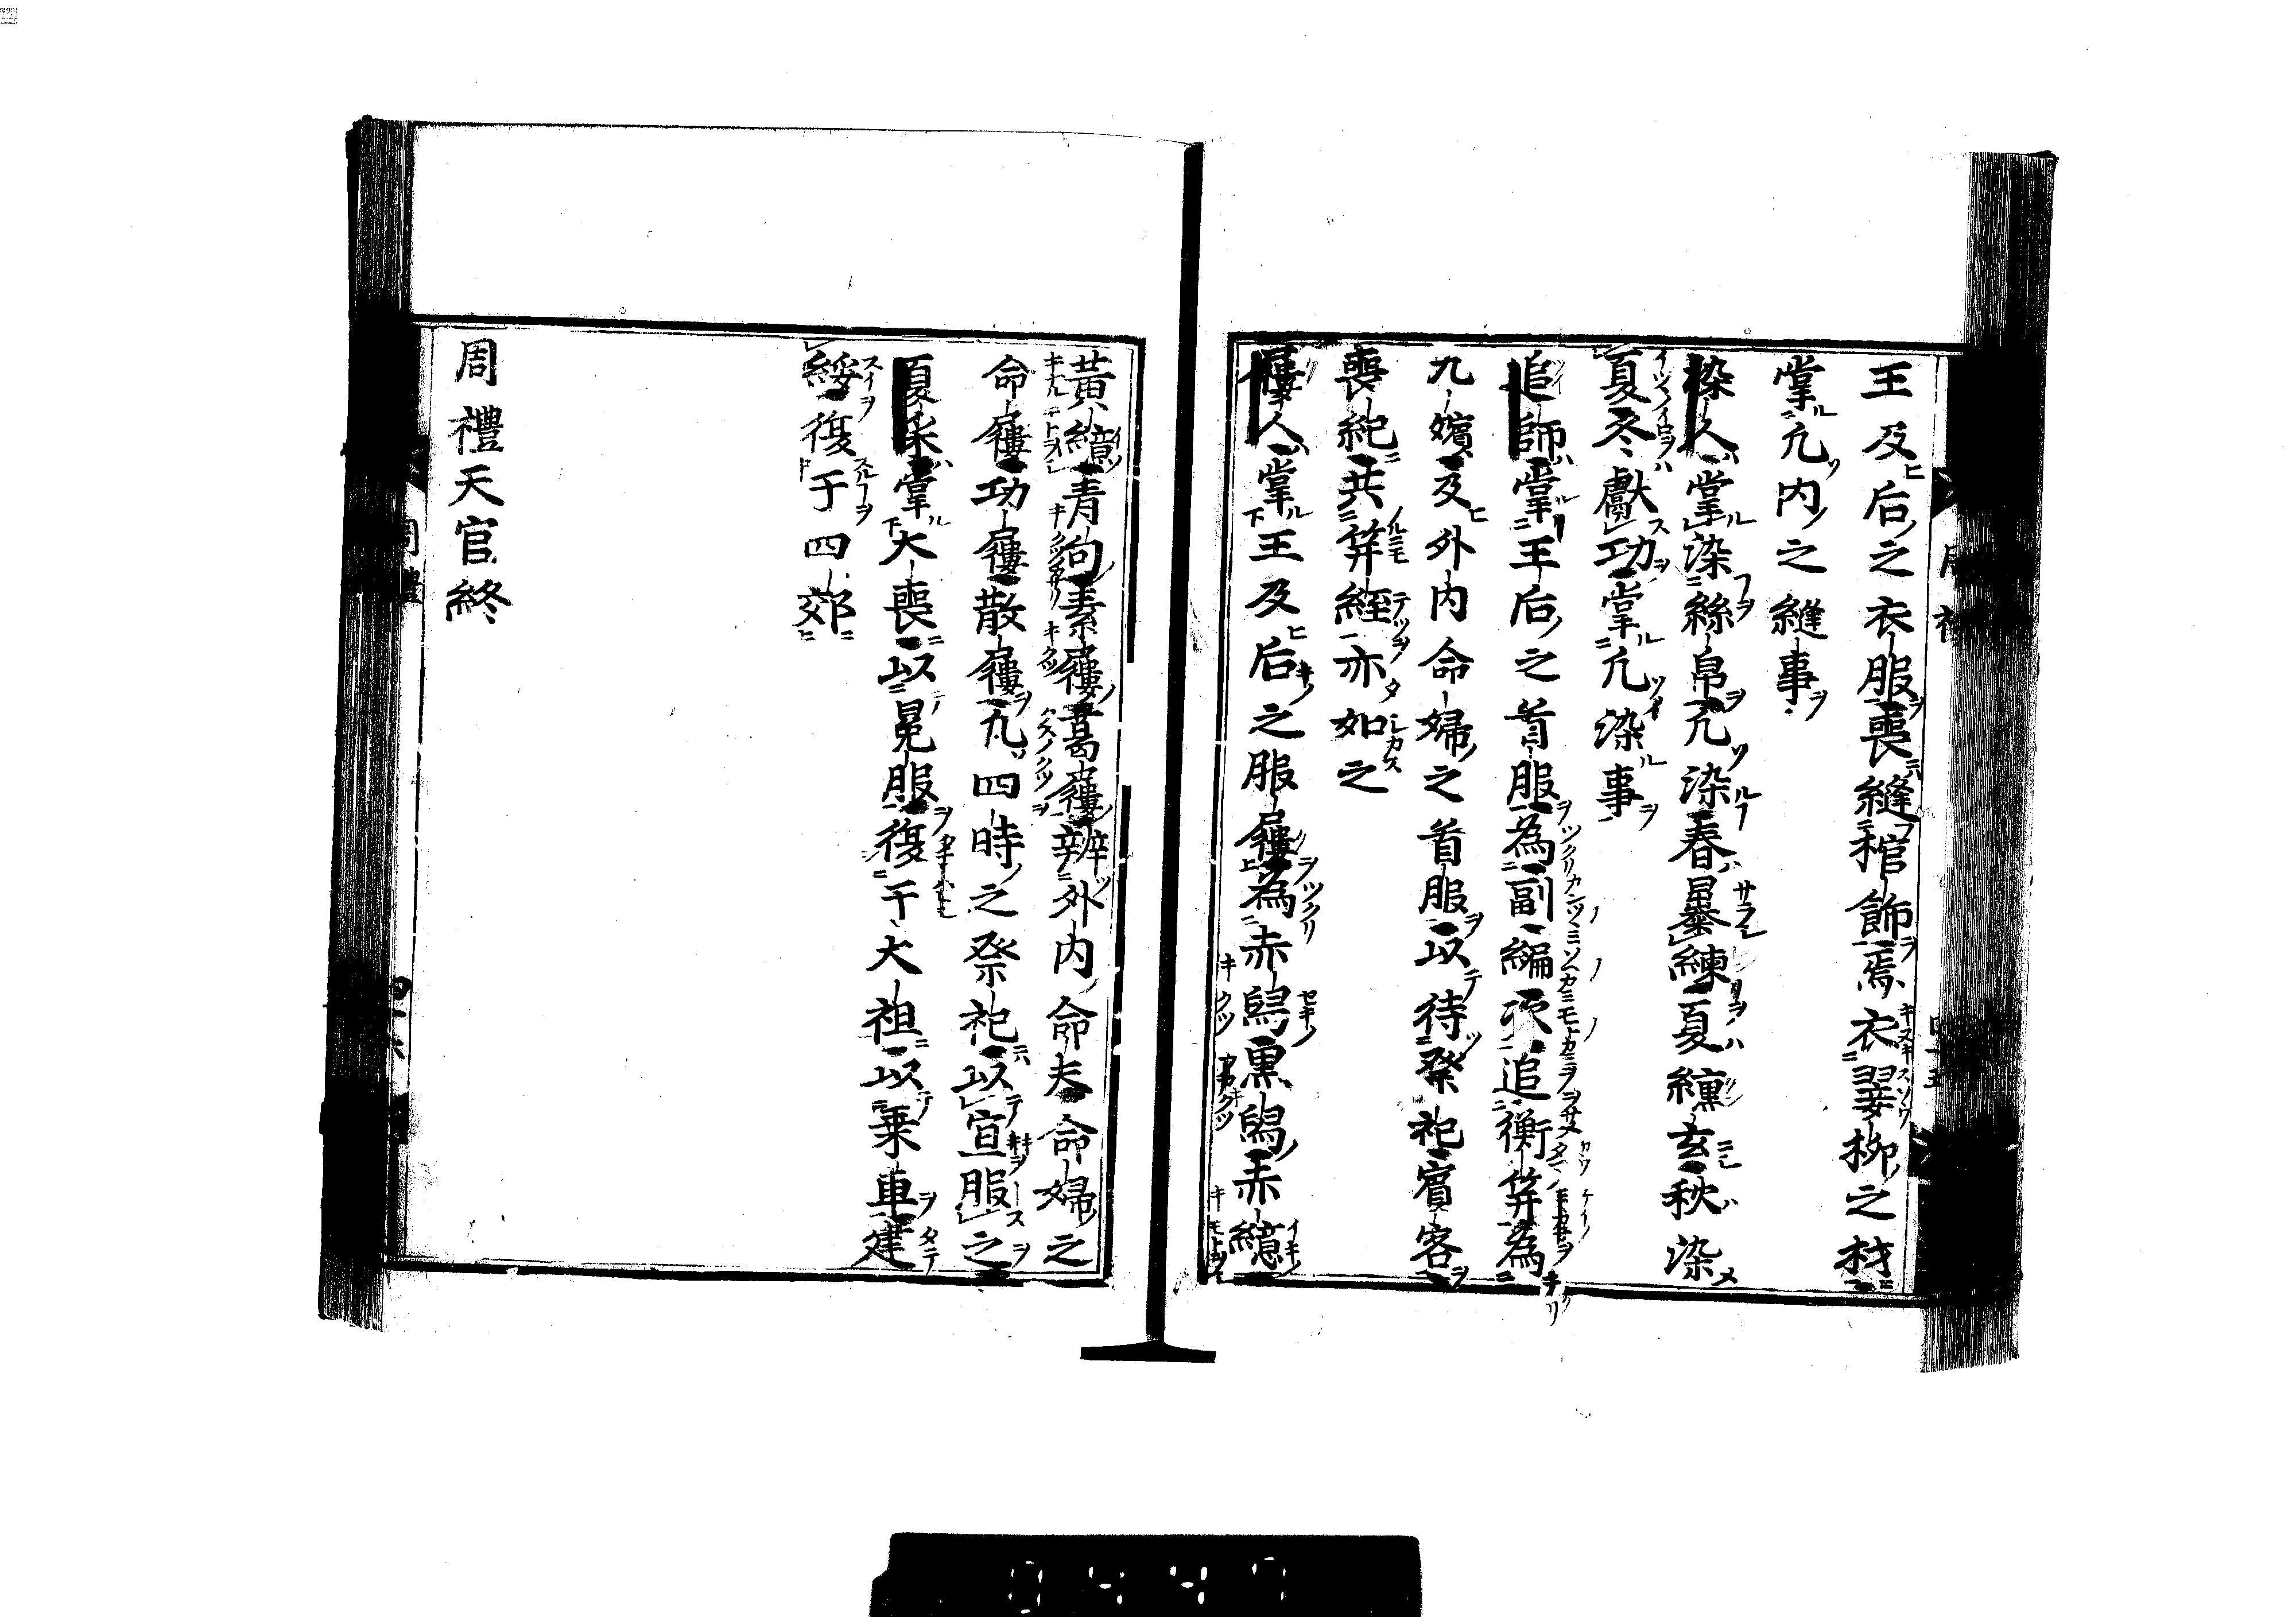 王及后之衣服喪縫棺飾焉衣翣柳之材
掌凢内之縫事
染人掌染絲帛凢染春暴練夏纁玄秋染
夏冬獻功掌凢染事
追師掌王后之首服為副編次追衡筓為
九嬪及外内命婦之首服以待祭祀賓客
喪紀共筓絰亦如之
屨人掌王及后之服屨為赤舄黒舄赤繶
黄繶青句素屨葛屨辨外内命夫命婦之
命屨功屨散屨凢四時之祭祀以宜服之
夏采掌大喪以冕服復于大祖以乗車建
綏復于四郊
周禮天官終